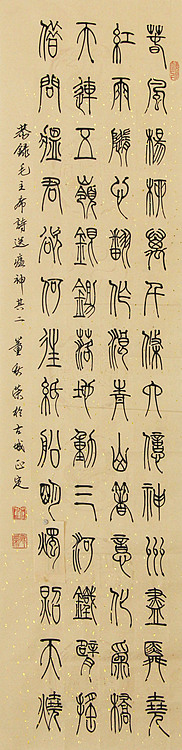 春風楊柳萬千條六億神州盡舜堯
紅雨隨心翻作浪青山著意化為橋
天連五嶺銀鋤落地動三河鐵臂搖
借問瘟君欲何往紙船明燭照天燒
恭錄毛主席詩送瘟神其二 董榮於古城正定